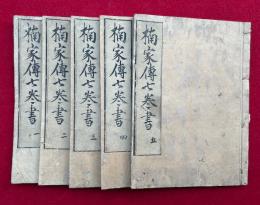 楠家傳七巻書 一
楠家傳七巻書 二
楠家傳七巻書 三
楠家傳七巻書 四
楠家傳七巻書 五